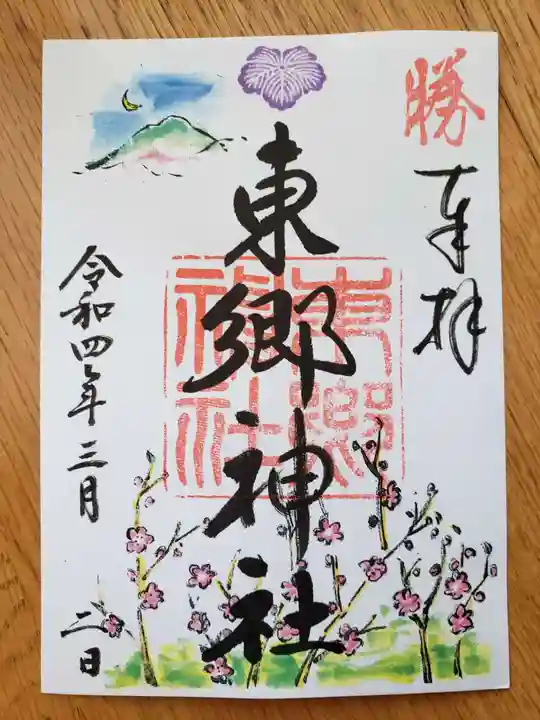 勝
奉拝
東郷神社
東郷神社
令和四年三月
二日